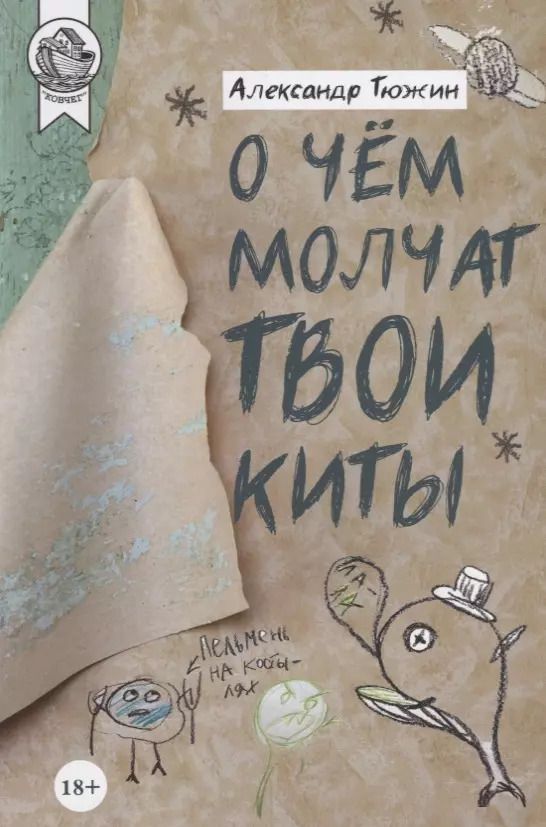 "КОВЧЕГ"
Александр Тюжин
О ЧЁМ
МОЛЧАТ
ТВОИ
КИТЫ
Пельмень
на косты-
лях
18+